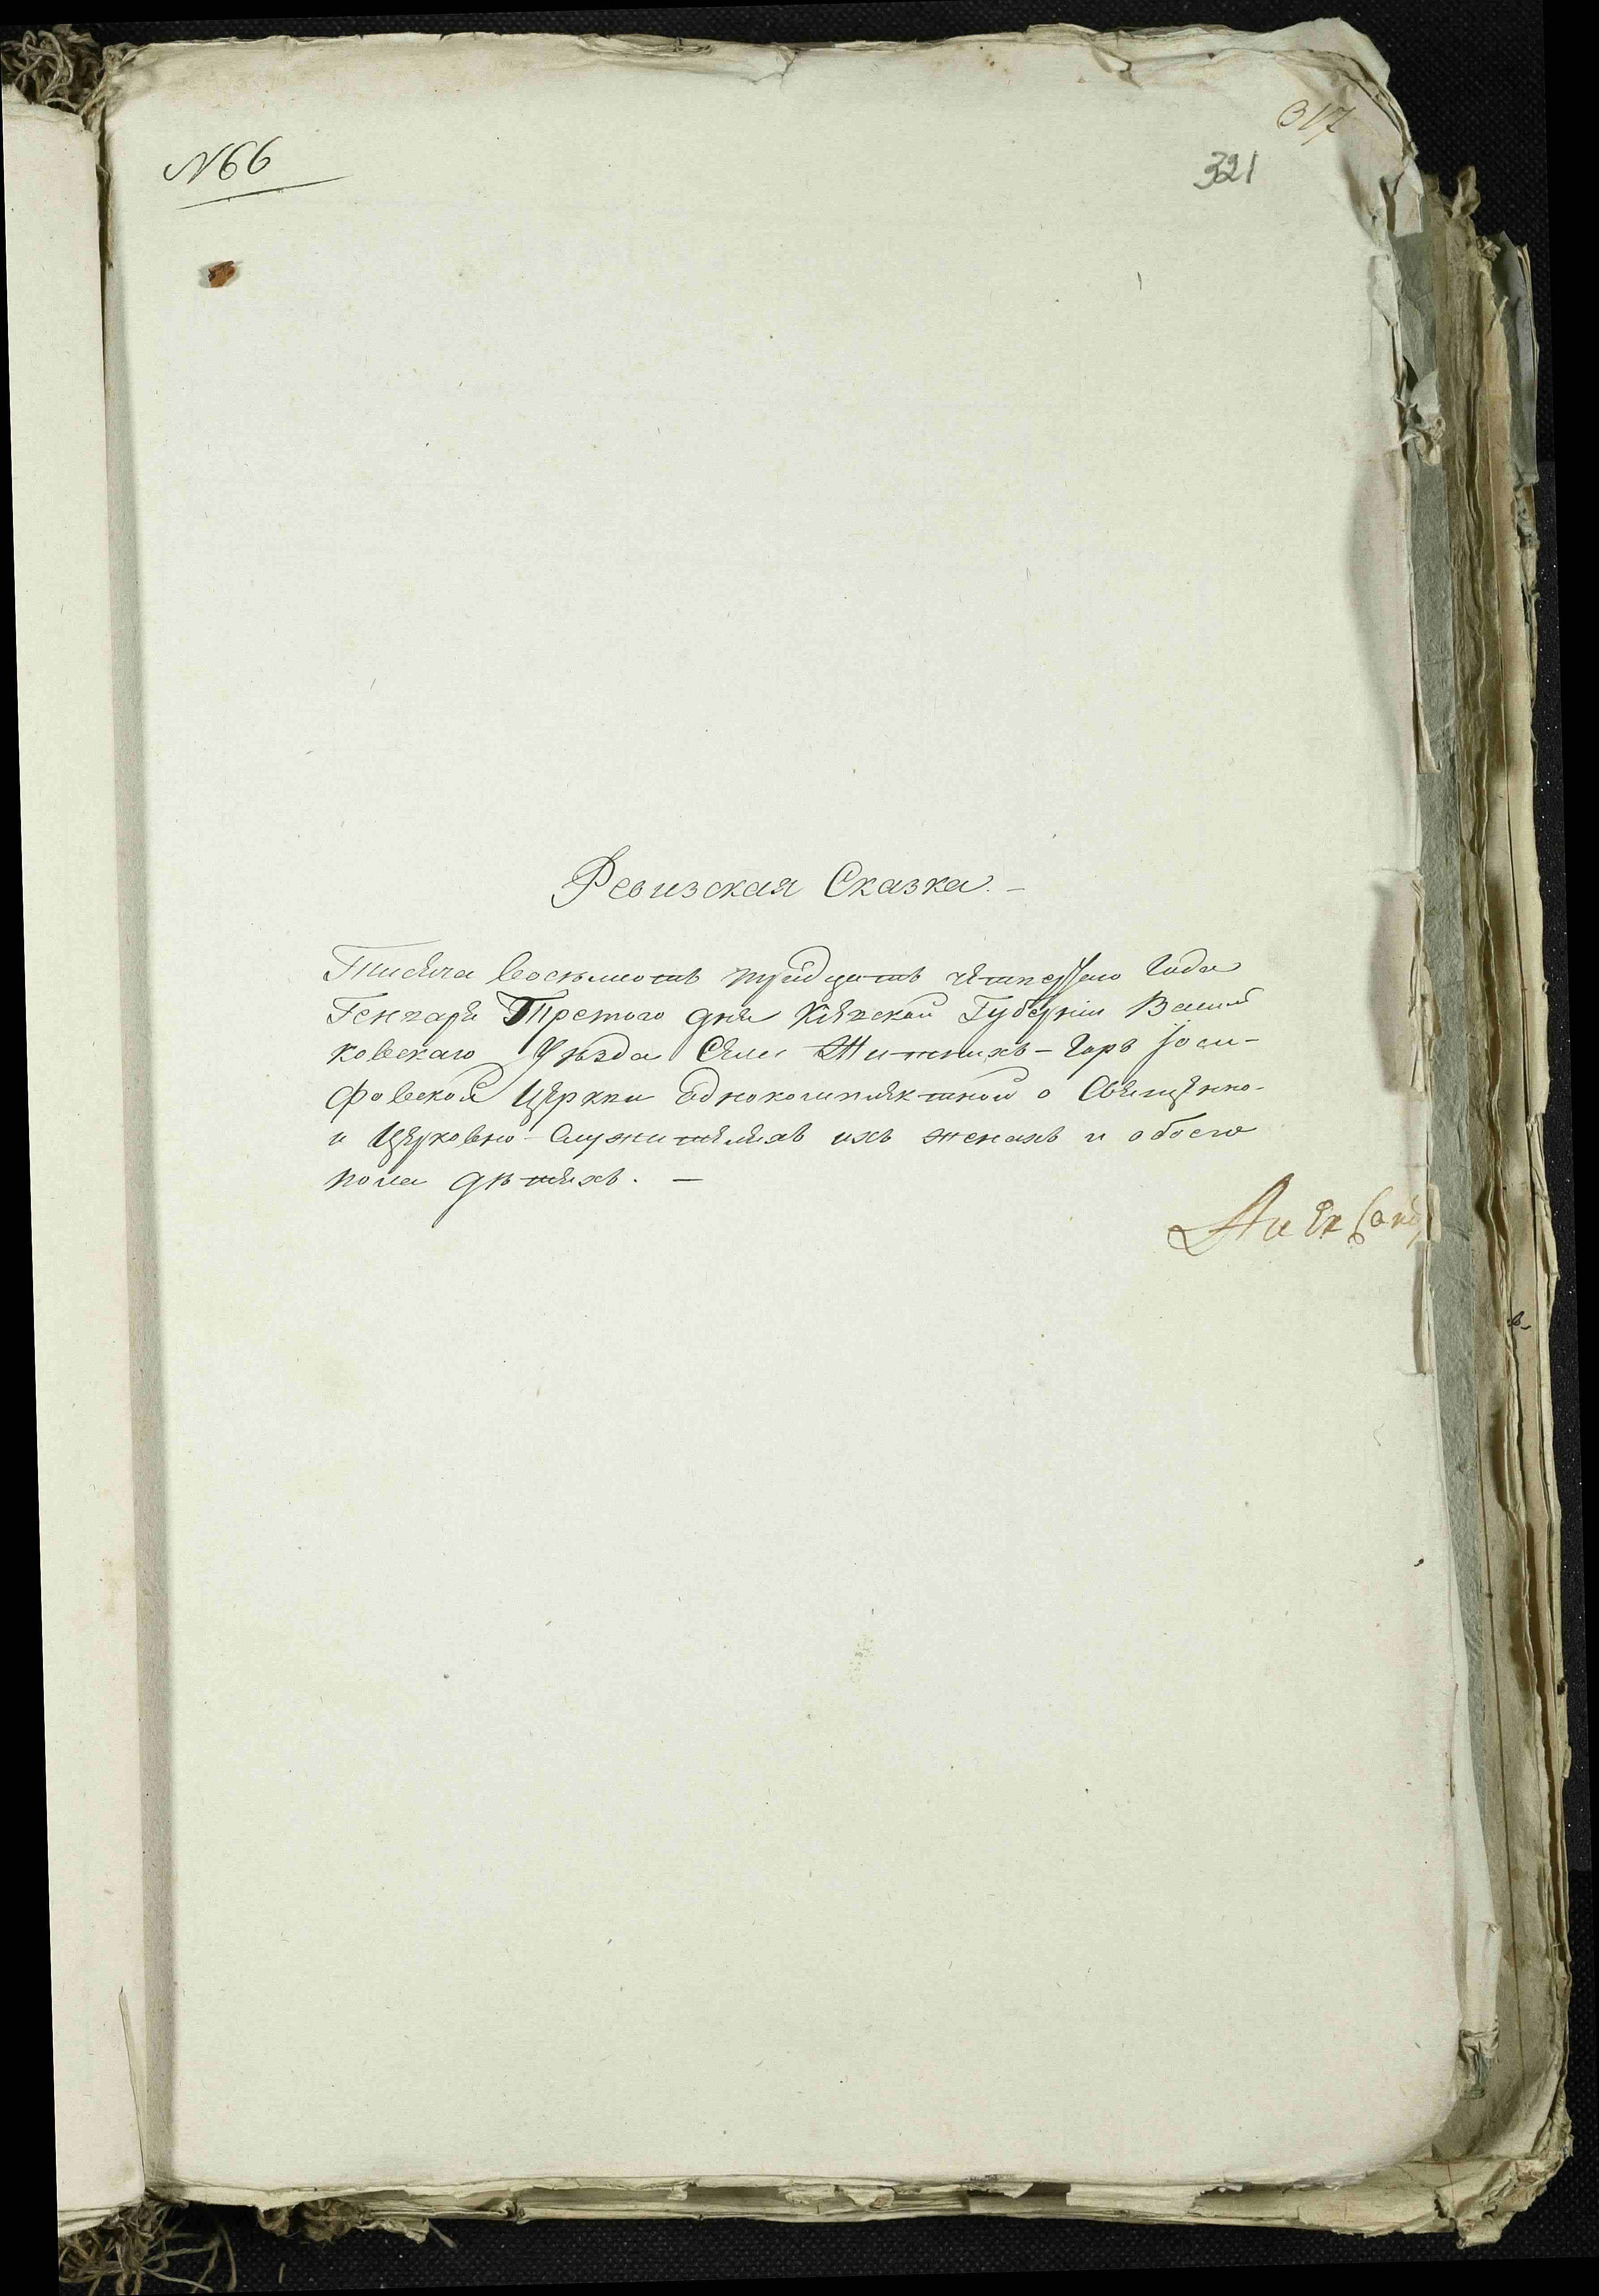 N66
317
321
Ревизская Сказка. —
Тисяча восьмотъ тридцать четвертаго Года
Генваря Третого дня Кіевской Губерніи Василь
ковскаго Уѣзда Села Житнихъ-Горъ Іоси-
фовской Церкви Однокомплектной о Священно-
и Церковно-Служителяхъ ихъ женахъ и обоего
пола дѣтяхъ. —
Александ